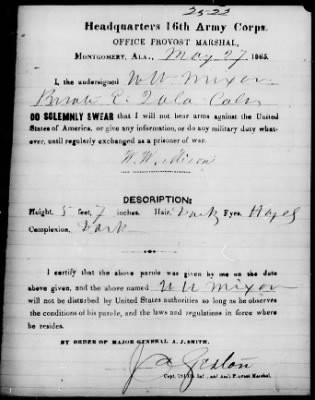 25-23
Headquarters 16th Army Corps.
OFFICE PROVOST MARSHAL,
MONTGOMERY, ALA., May 27 1865.
I, the undersigned W W Mixon
Private E.
DO SOLEMNLY SWEAR that I will not bear arms against the
United States of America, or give any information, or do any military duty what-
ever, until regularly exchanged as a prisoner of war.
W. W. Mixon
DESCRIPTION:
Height, 5 feet, 7 inches. Hair, Dark Eyes, Hazel
Complexion, Dark
I certify that the above parole was given by me on the date
above given, and the above named W W Mixon
will not be disturbed by United States authorities so long as he observes
the conditions of his parole, and the laws and regulations in force where
he resides.
BY ORDER OF MAJOR GENERAL A. J. SMITH.
Capt. Inf., and Ass't Provost Marshal.